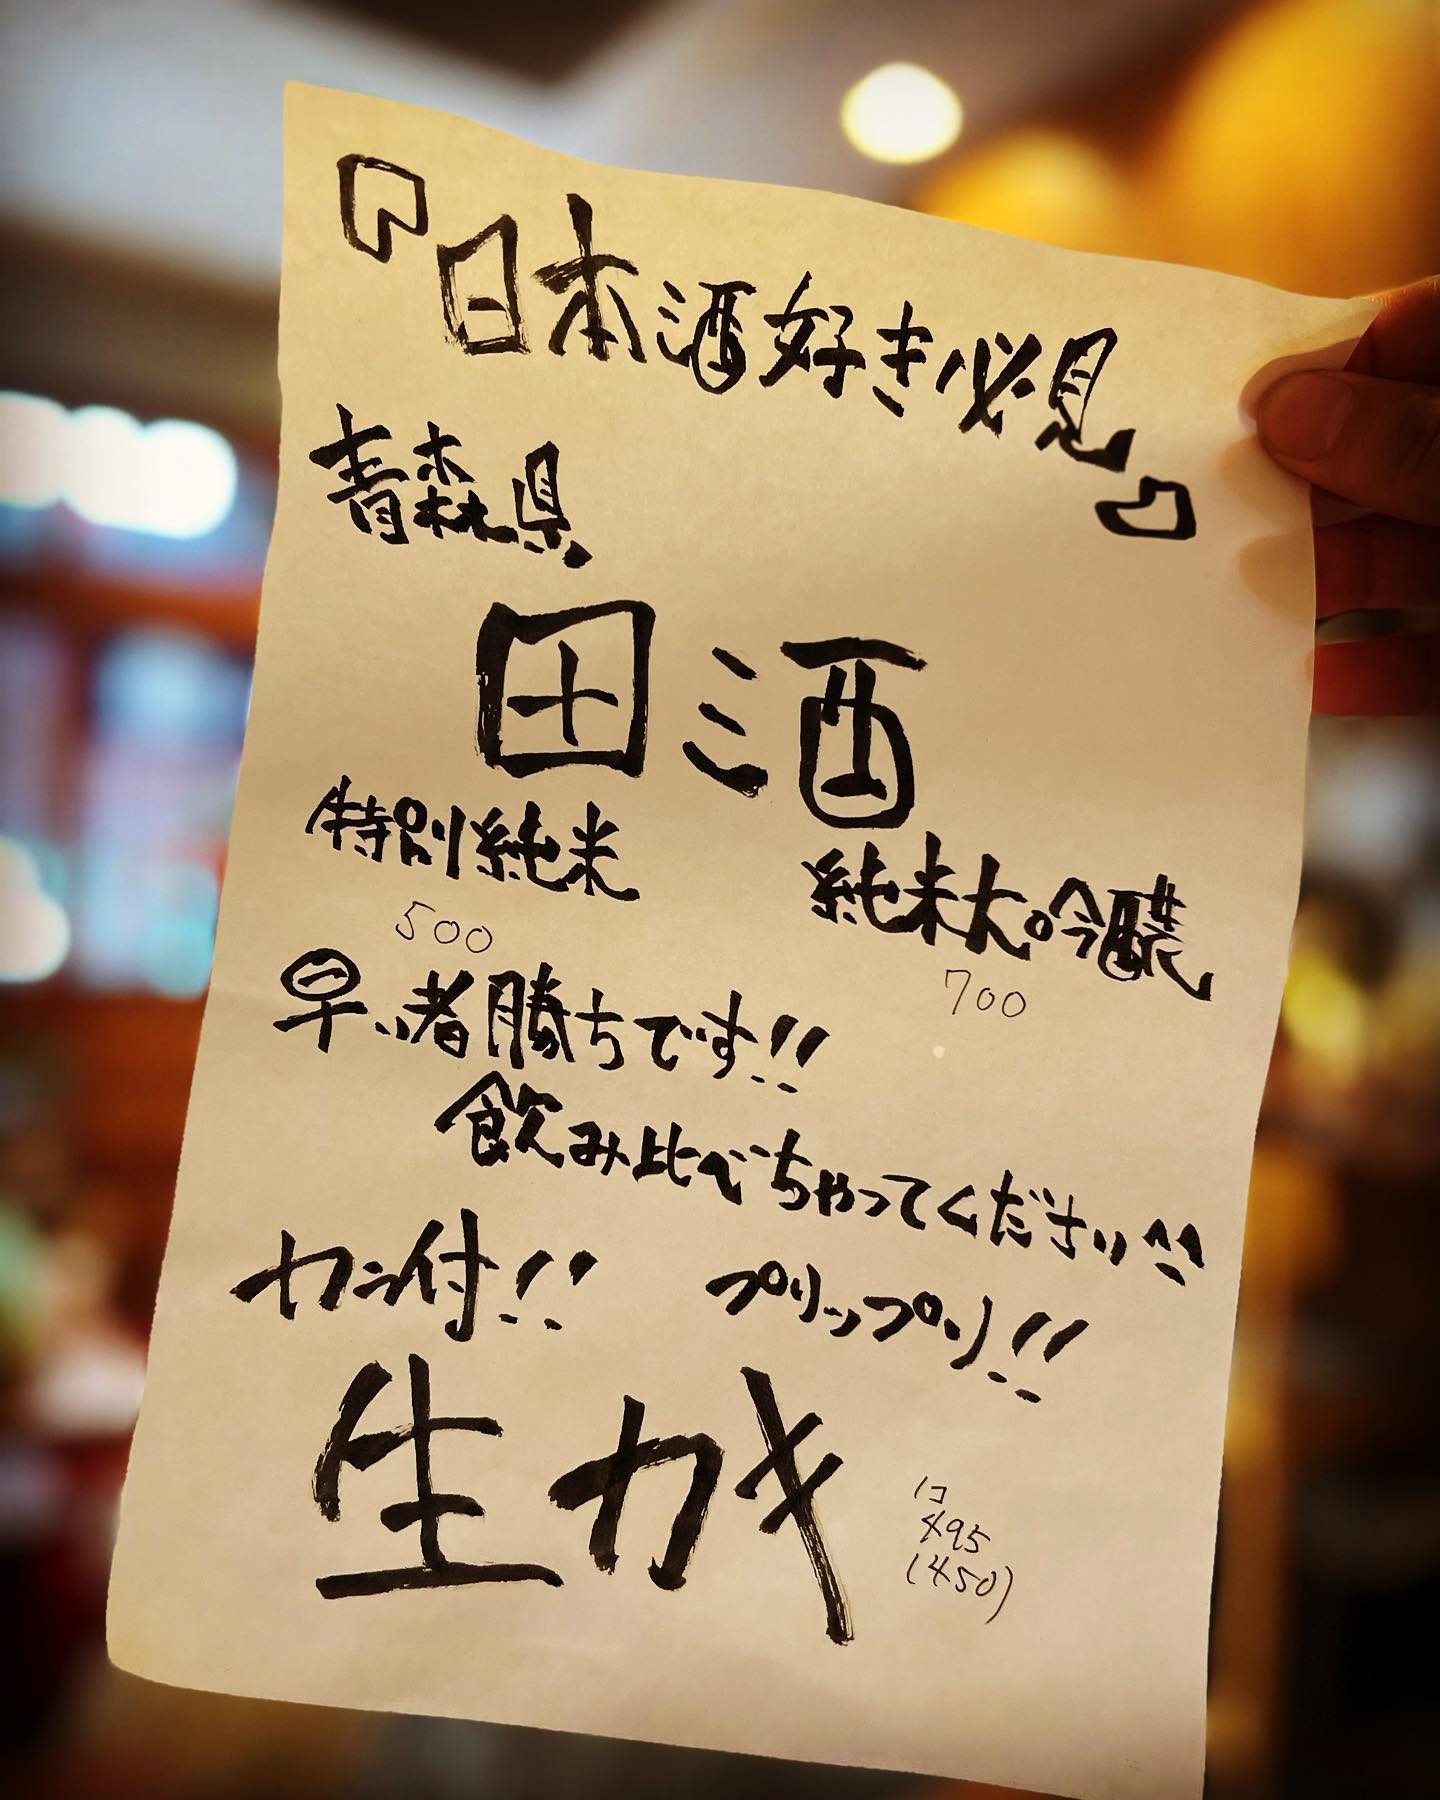 『日本酒好き必見』
青森県
田酒
特別純米 純米大吟醸
500 700
早い者勝ちです!!
飲み比べちゃってください!!
カラ付!! プリップリ!!
生カキ
1コ
495
(450)